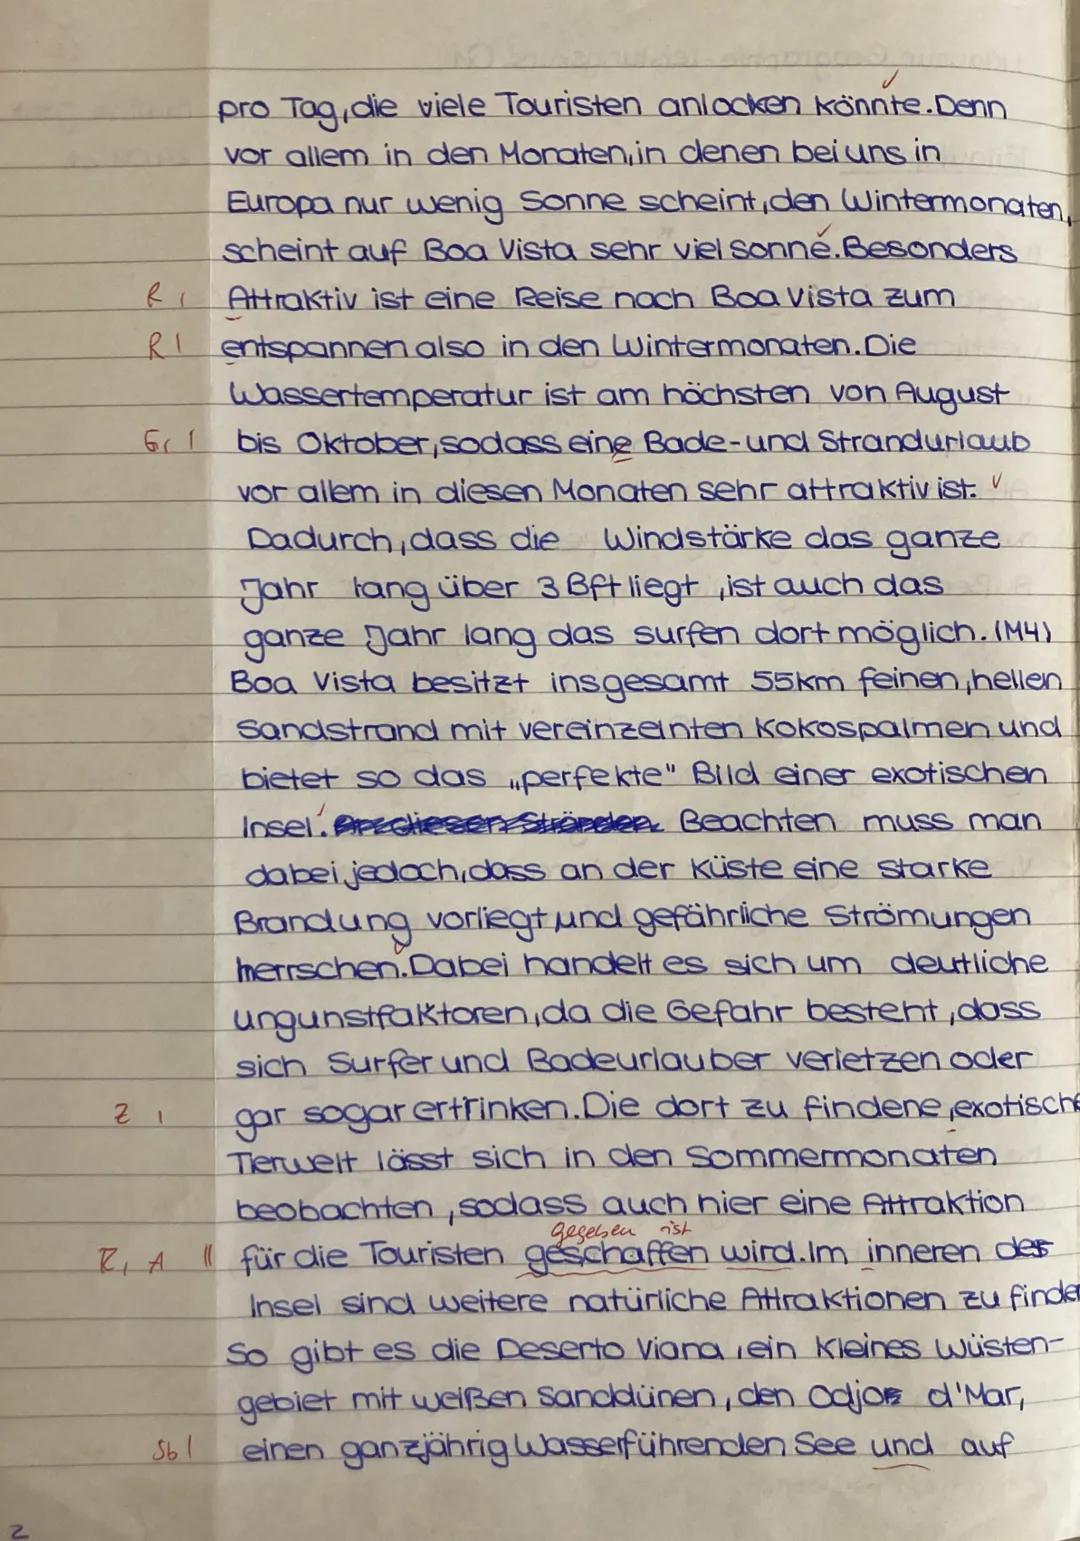 pro Tag, die viele Touristen anlocken könnte. Denn
vor allem in den Monaten, in denen bei uns in
Europa nur wenig Sonne scheint, den Wintermonaten,
scheint auf Boa Vista sehr viel Sonne. Besonders
R I Attraktiv ist eine Reise nach Boa Vista zum
R I entspannen also in den Wintermonaten. Die
Wassertemperatur ist am höchsten von August
Gr I bis Oktober, sodass eine Bade- und Strandurlaub
vor allem in diesen Monaten sehr attraktiv ist.
Dadurch, dass die Windstärke das ganze
Jahr lang über 3 Bft liegt, ist auch das
ganze Jahr lang das surfen dort möglich. (M4)
Boa Vista besitzt insgesamt 55km feinen, hellen
Sandstrand mit vereinzelnten Kokospalmen und
bietet so das „perfekte" Bild einer exotischen
Insel. Beachten muss man
dabei jedoch, dass an der Küste eine starke
Brandung vorliegt und gefährliche Strömungen
herrschen. Dabei handelt es sich um deutliche
ungunstfaktoren, da die Gefahr besteht, dass
sich Surfer und Badeurlauber verletzen oder
Z I gar sogar ertrinken. Die dort zu findene, exotische
Tierwelt lässt sich in den Sommermonaten
beobachten, sodass auch hier eine Attraktion
gegeben ist
R, A II für die Touristen geschaffen wird. Im inneren der
Insel sind weitere natürliche Attraktionen zu finden
So gibt es die Deserto Viana, ein kleines Wüsten-
gebiet mit weißen Sanddünen, den Odjos d'Mar,
Sb I einen ganzjährig Wasserführenden See und auf
2